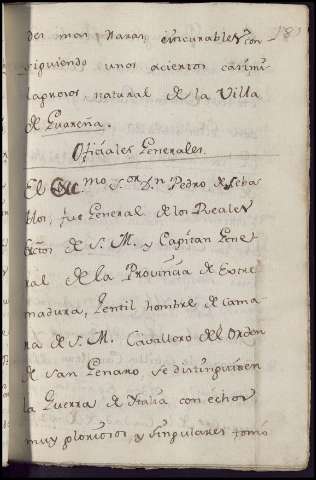 des mas raras, é incurables, con-
siguiendo unos aciertos casi mi-
lagrosos, natural de la Villa
de Guareña.
Oficiales Generales.
El Exc.mo S.or D.n Pedro de Ceba-
llos, fue General de los Reales
Exctos de S. M. y Capitan Gene
ral de la Provincia de Extre
madura, Gentil hombre de cama
ra de S. M. Cavallero del Orden
de San Genaro, se distinguió en
la Guerra de Italia con echos
muy gloriosos y singulares tomó